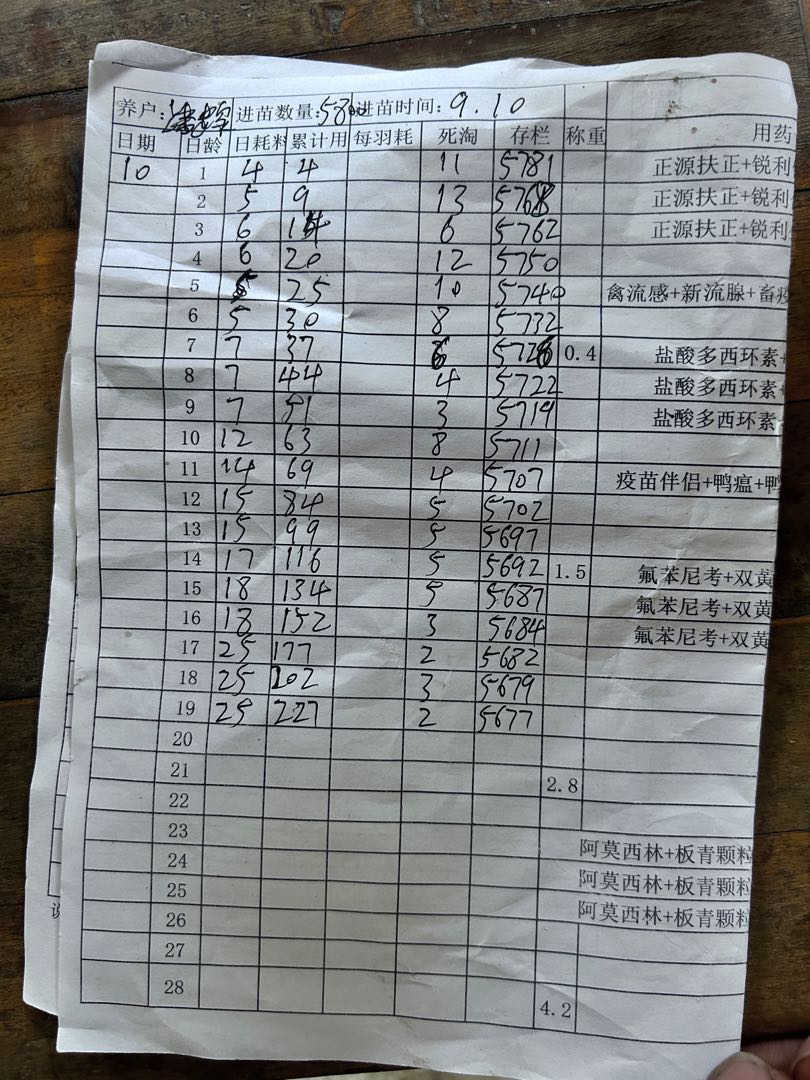 养户: 进苗数量:5800 进苗时间: 9.10
日期 日龄 日耗料 累计用 每羽耗 死淘 存栏 称重 用药
10 1 4 4 11 5781 正源扶正+锐利
2 5 9 13 5768 正源扶正+锐利
3 6 14 6 5762 正源扶正+锐利
4 6 20 12 5750
5 5 25 10 5740 禽流感+新流腺+畜疫
6 5 30 8 5732
7 7 37 6 5726 0.4 盐酸多西环素+
8 7 44 4 5722 盐酸多西环素+
9 7 51 3 5719 盐酸多西环素+
10 12 63 8 5711
11 14 69 4 5707 疫苗伴侣+鸭瘟+鸭
12 15 84 5 5702
13 15 99 5 5697
14 17 116 5 5692 1.5 氟苯尼考+双黄
15 18 134 5 5687 氟苯尼考+双黄
16 18 152 3 5684 氟苯尼考+双黄
17 25 177 2 5682
18 25 202 3 5679
19 25 227 2 5677
20
21 2.8
22
23
24 阿莫西林+板青颗粒
25 阿莫西林+板青颗粒
26 阿莫西林+板青颗粒
27
28 4.2